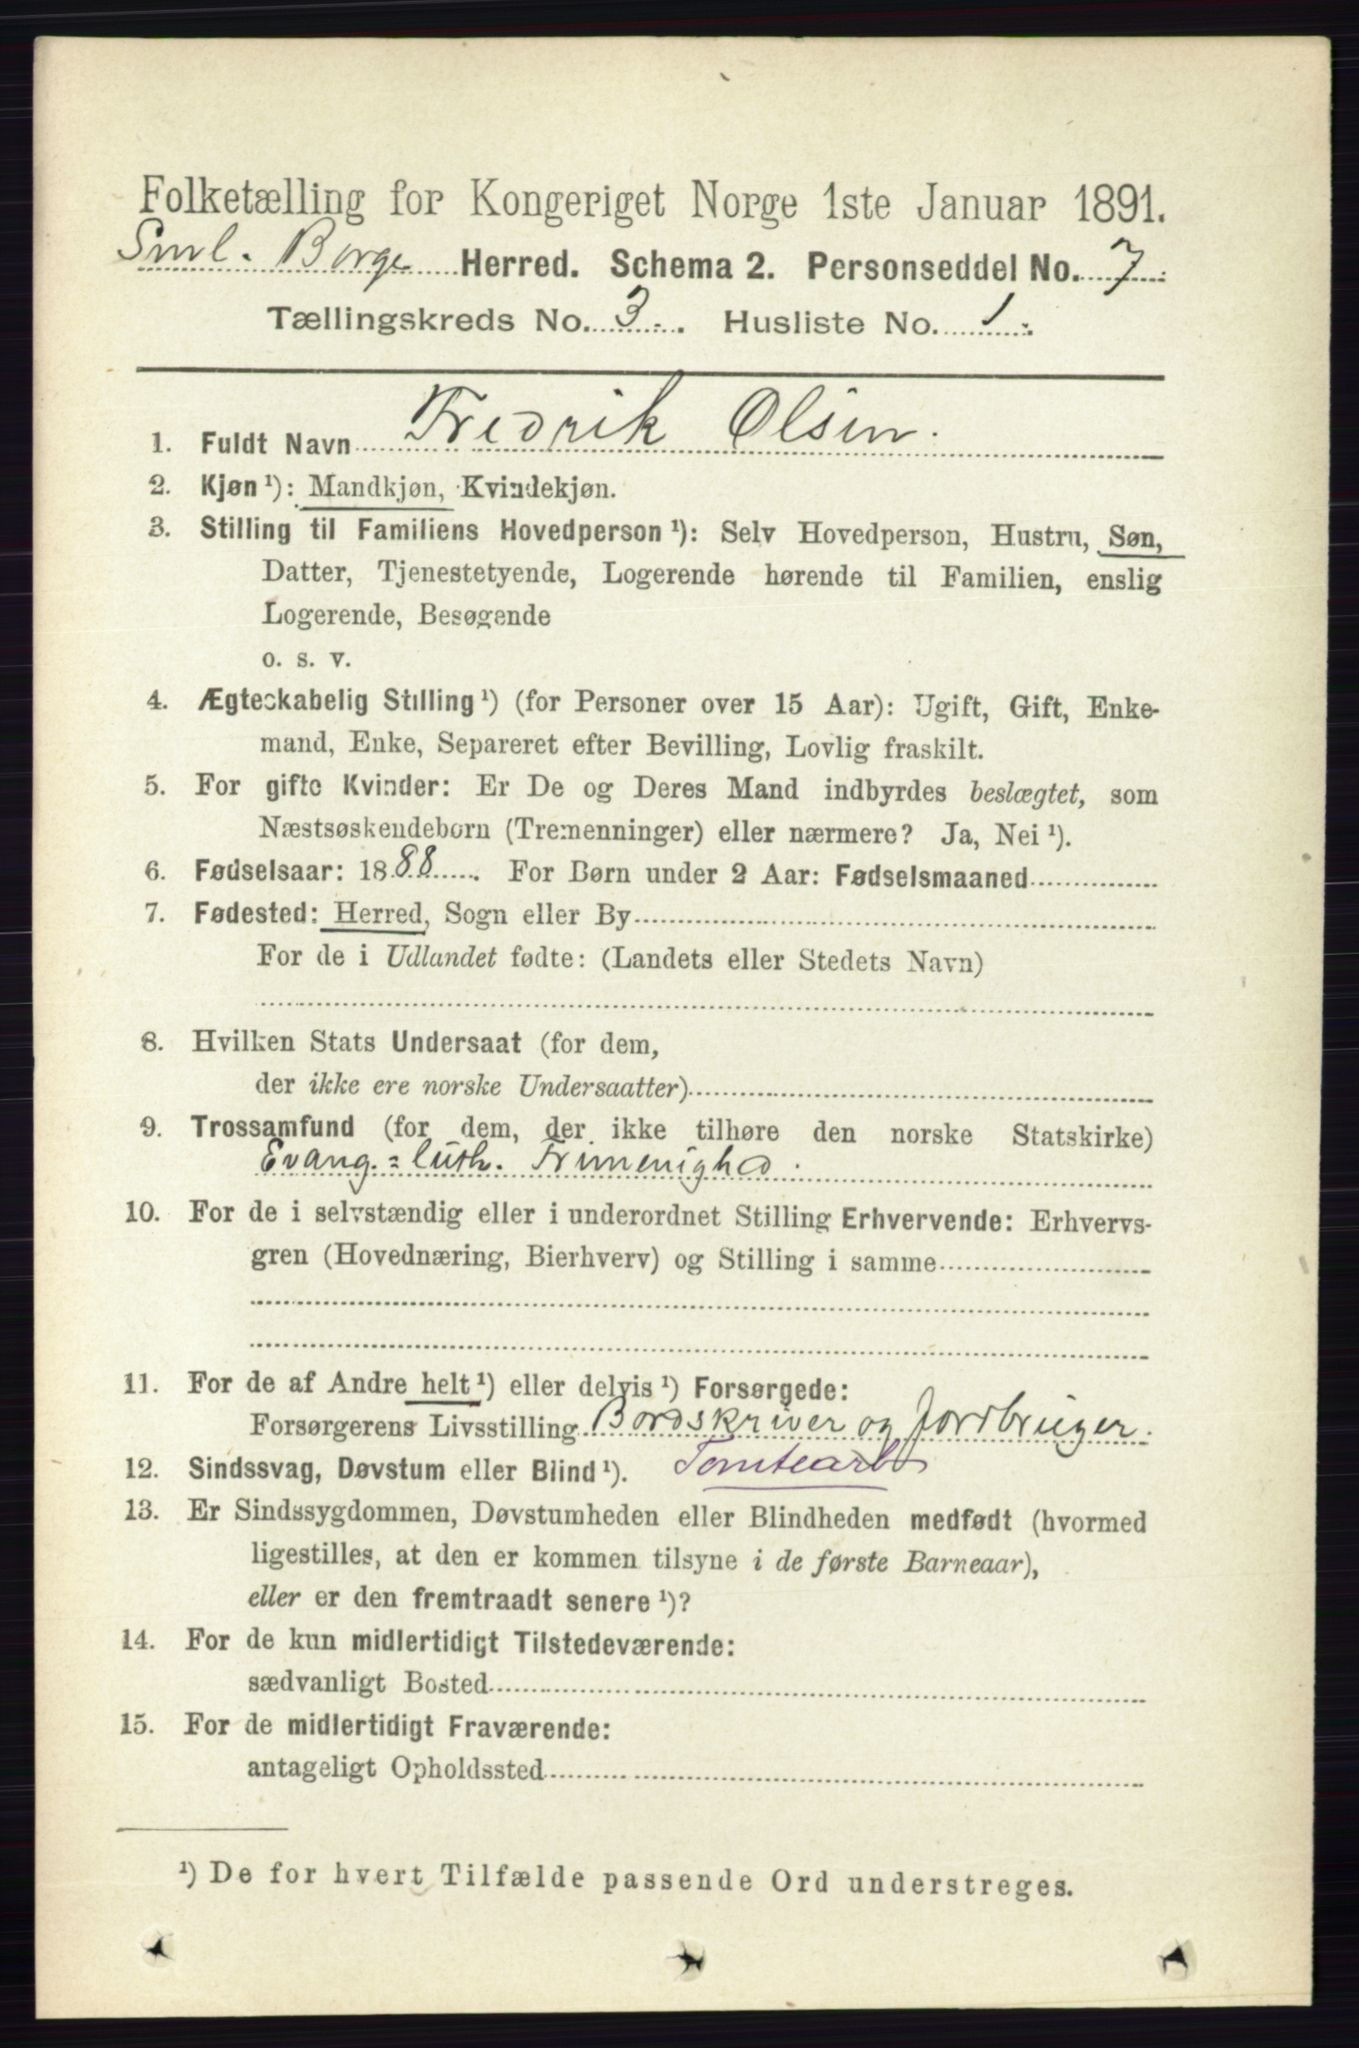 Folketælling for Kongeriget Norge 1ste Januar 1891.
Sml. Borge Herred. Schema 2. Personseddel No. 7
Tællingskreds No. 3. Husliste No. 1.
1. Fuldt Navn Fredrik Olsen.
2. Kjøn ¹): Mandkjøn, Kvindekjøn.
3. Stilling til Familiens Hovedperson ¹): Selv Hovedperson, Hustru, Søn,
Datter, Tjenestetyende, Logerende hørende til Familien, enslig
Logerende, Besøgende
o. s. v.
4. Ægteskabelig Stilling ¹) (for Personer over 15 Aar): Ugift, Gift, Enke-
mand, Enke, Separeret efter Bevilling, Lovlig fraskilt.
5. For gifte Kvinder: Er De og Deres Mand indbyrdes beslægtet, som
Næstsøskendebørn (Tremenninger) eller nærmere? Ja, Nei ¹).
6. Fødselsaar: 1888. For Børn under 2 Aar: Fødselsmaaned
7. Fødested: Herred, Sogn eller By
For de i Udlandet fødte: (Landets eller Stedets Navn)
8. Hvilken Stats Undersaat (for dem,
der ikke ere norske Undersaatter)
9. Trossamfund (for dem, der ikke tilhøre den norske Statskirke)
Evang.=luth. Frimenighed.
10. For de i selvstændig eller i underordnet Stilling Erhvervende: Erhvervs-
gren (Hovednæring, Bierhverv) og Stilling i samme
11. For de af Andre helt ¹) eller delvis ¹) Forsørgede:
Forsørgerens Livsstilling Bordskriver og Jordbruger.
12. Sindssvag, Døvstum eller Blind ¹). Tomtearb
13. Er Sindssygdommen, Døvstumheden eller Blindheden medfødt (hvormed
ligestilles, at den er kommen tilsyne i de første Barneaar),
eller er den fremtraadt senere ¹)?
14. For de kun midlertidigt Tilstedeværende:
sædvanligt Bosted
15. For de midlertidigt Fraværende:
antageligt Opholdssted
¹) De for hvert Tilfælde passende Ord understreges.